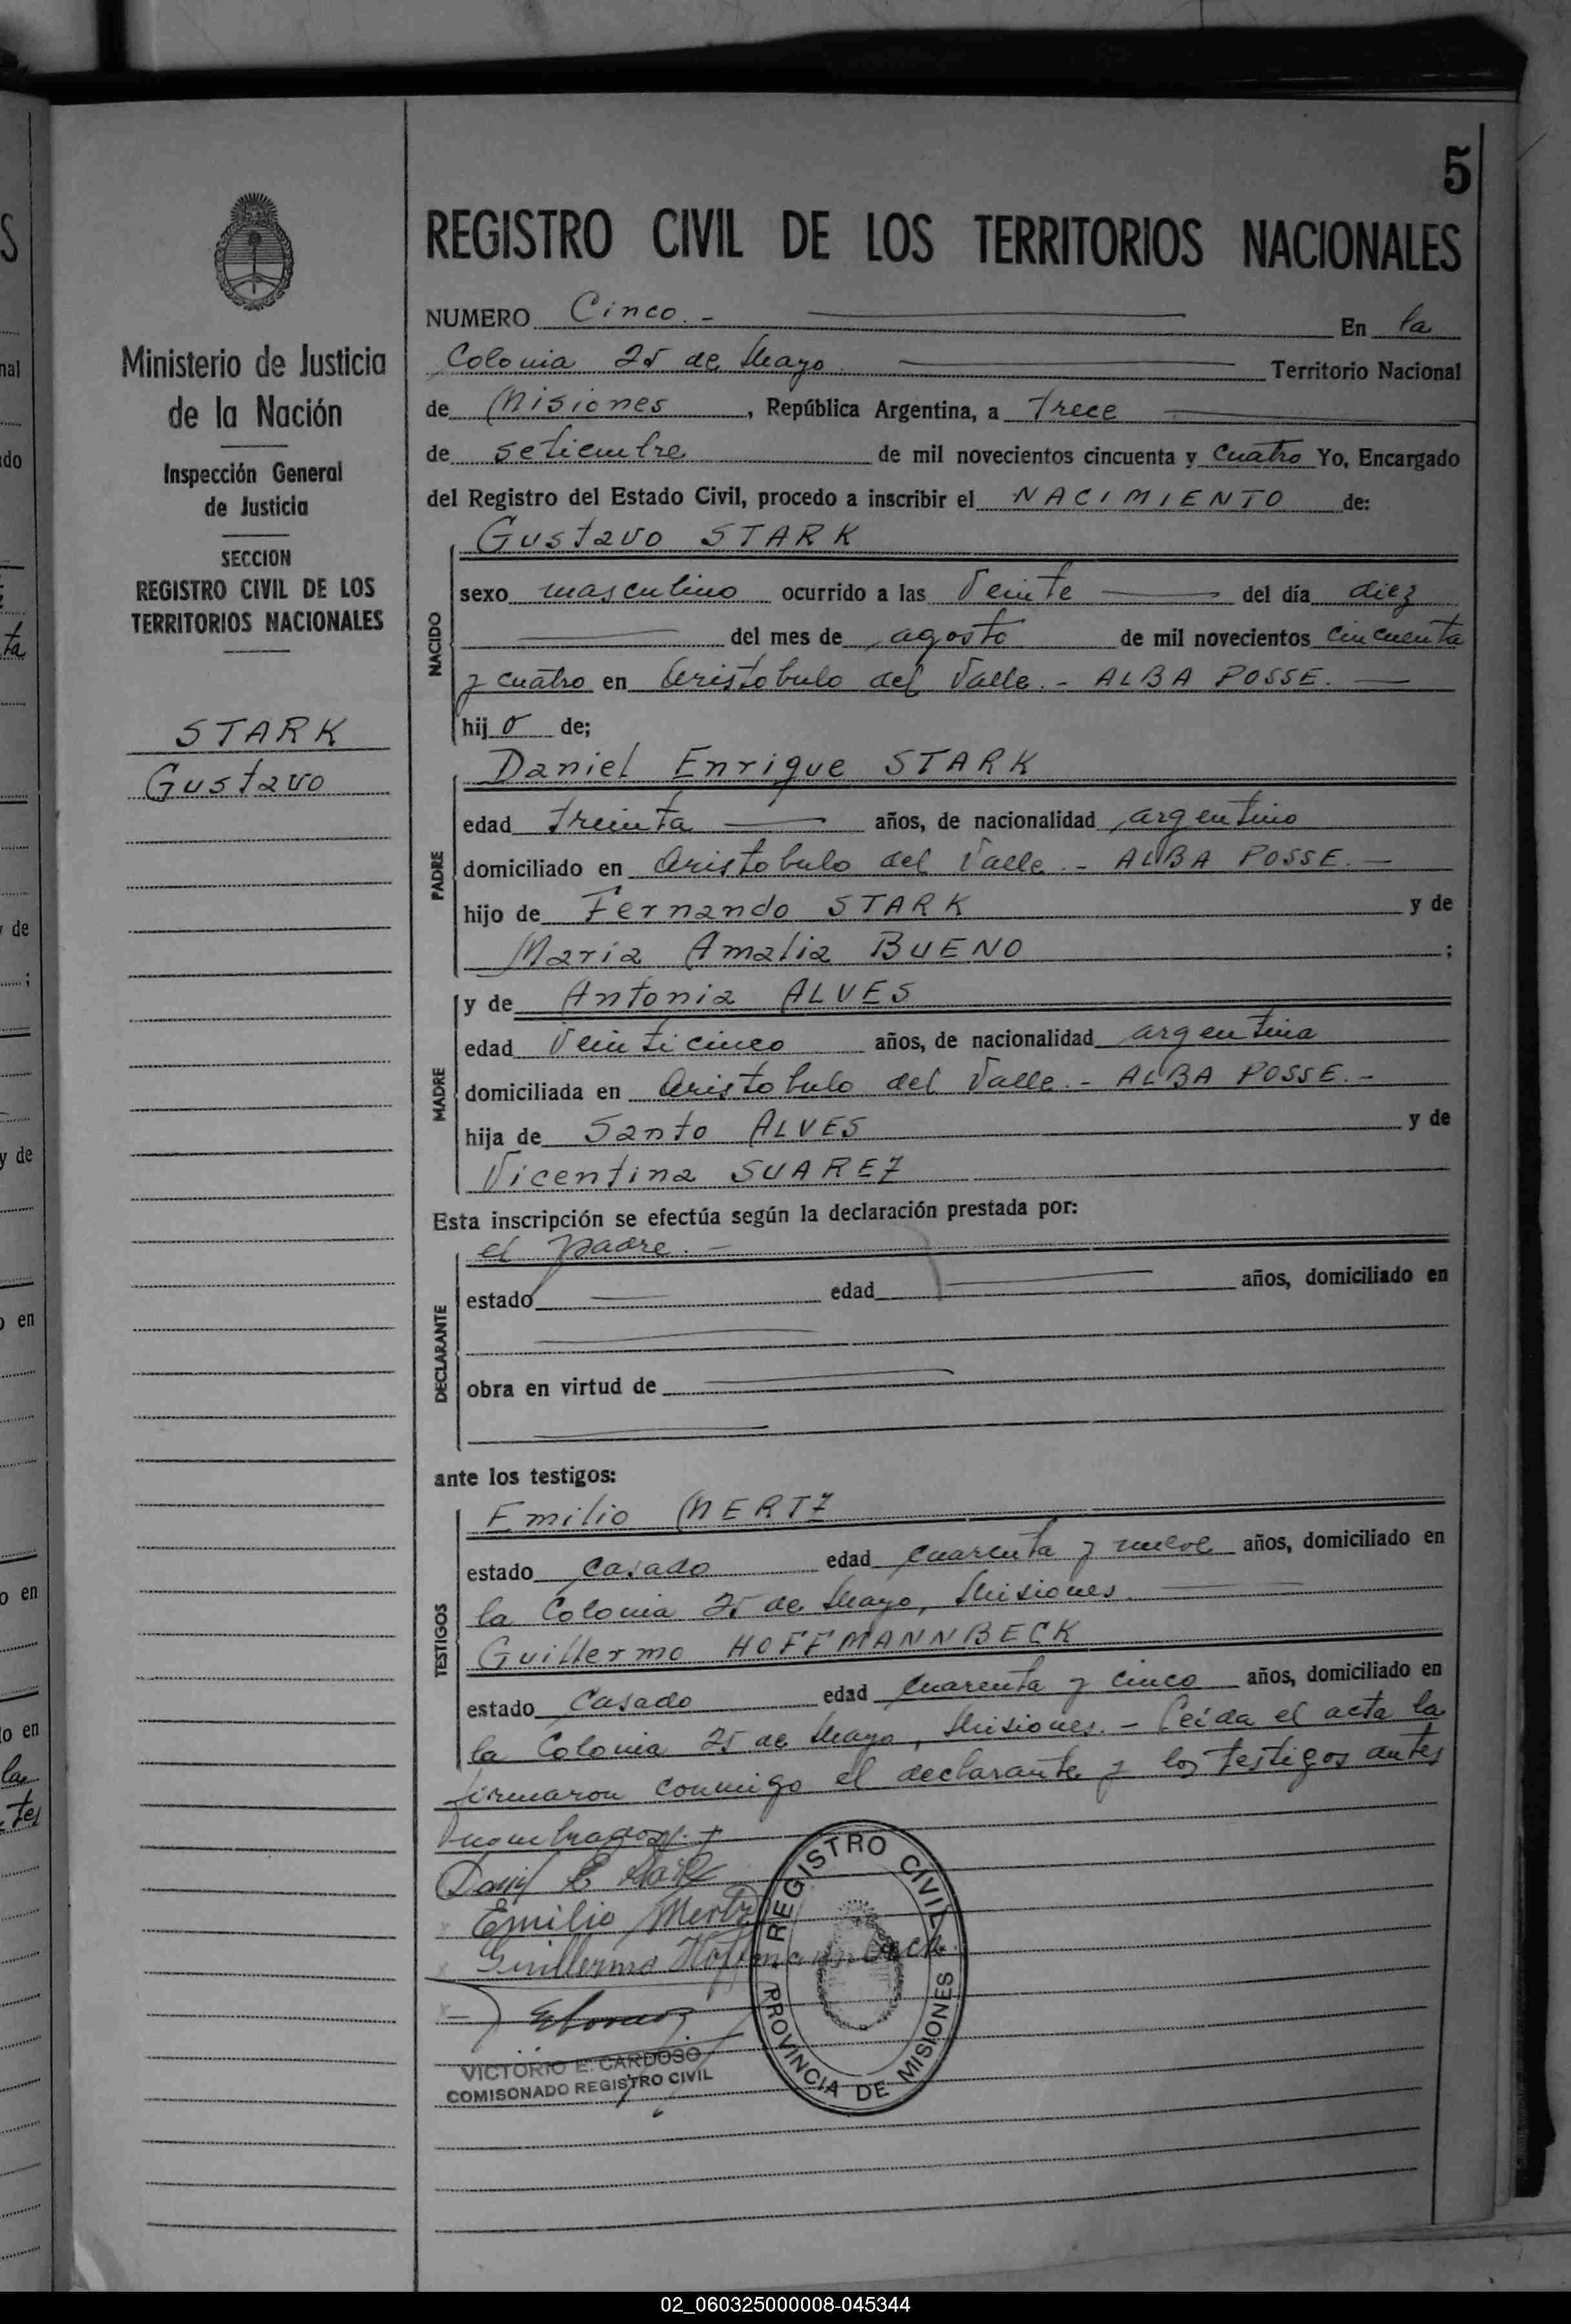 5
REGISTRO CIVIL DE LOS TERRITORIOS NACIONALES
Ministerio de Justicia
de la Nación
Inspección General
de Justicia
SECCION
REGISTRO CIVIL DE LOS
TERRITORIOS NACIONALES
STARK
Gustavo
NUMERO Cinco.- En la
Colonia 25 de Mayo Territorio Nacional
de Misiones, República Argentina, a Trece
de setiembre de mil novecientos cincuenta y cuatro Yo, Encargado
del Registro del Estado Civil, procedo a inscribir el NACIMIENTO de:
NACIDO
Gustavo STARK
sexo masculino ocurrido a las Veinte del día diez
del mes de agosto de mil novecientos cincuenta
y cuatro en Aristobulo del Valle.- ALBA POSSE.
hijo de;
PADRE
Daniel Enrique STARK
edad treinta años, de nacionalidad argentino
domiciliado en Aristobulo del Valle.- ALBA POSSE.-
hijo de Fernando STARK y de
Maria Amalia BUENO ;
MADRE
y de Antonia ALVES
edad Veinticinco años, de nacionalidad argentina
domiciliada en Aristobulo del Valle.- ALBA POSSE.-
hija de Santo ALVES y de
Vicentina SUAREZ
Esta inscripción se efectúa según la declaración prestada por:
DECLARANTE
el padre.-
estado edad años, domiciliado en
obra en virtud de
ante los testigos:
TESTIGOS
Emilio MERTZ
estado casado edad cuarenta y nueve años, domiciliado en
la Colonia 25 de Mayo, Misiones.
Guillermo HOFFMANNBECK
estado casado edad cuarenta y cinco años, domiciliado en
la Colonia 25 de Mayo, Misiones.- Leída el acta la
firmaron conmigo el declarante y los testigos antes
nombrados.-
Daniel E Stark
Emilio Mertz
Guillermo Hoffmannbeck
REGISTRO CIVIL
PROVINCIA DE MISIONES
VICTORIO E. CARDOSO
COMISONADO REGISTRO CIVIL
02_060325000008-045344